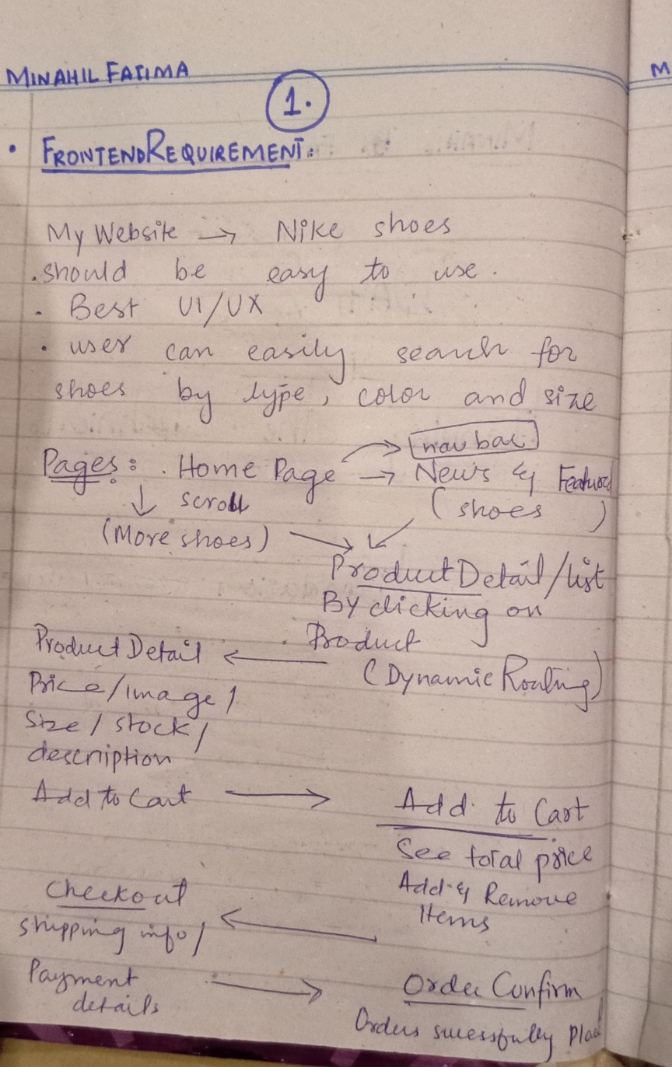 MINAHIL FATIMA
M
1.
• FRONTEND REQUIREMENT:
My Website → Nike shoes
. should be easy to use.
. Best UI/UX
. user can easily search for
shoes by type, color and size
nav bar
Pages: . Home Page → News & Featured
↓ scroll (shoes)
(More shoes)
Product Detail/list
By clicking on
Product Detail ← . Product
(Dynamic Routing)
Price/image/
Size/stock/
description
Add to Cart → Add to Cart
See total price
Checkout Add & Remove
Items
shipping info/ ←
Payment → Order Confirm
details
Orders sucessfully